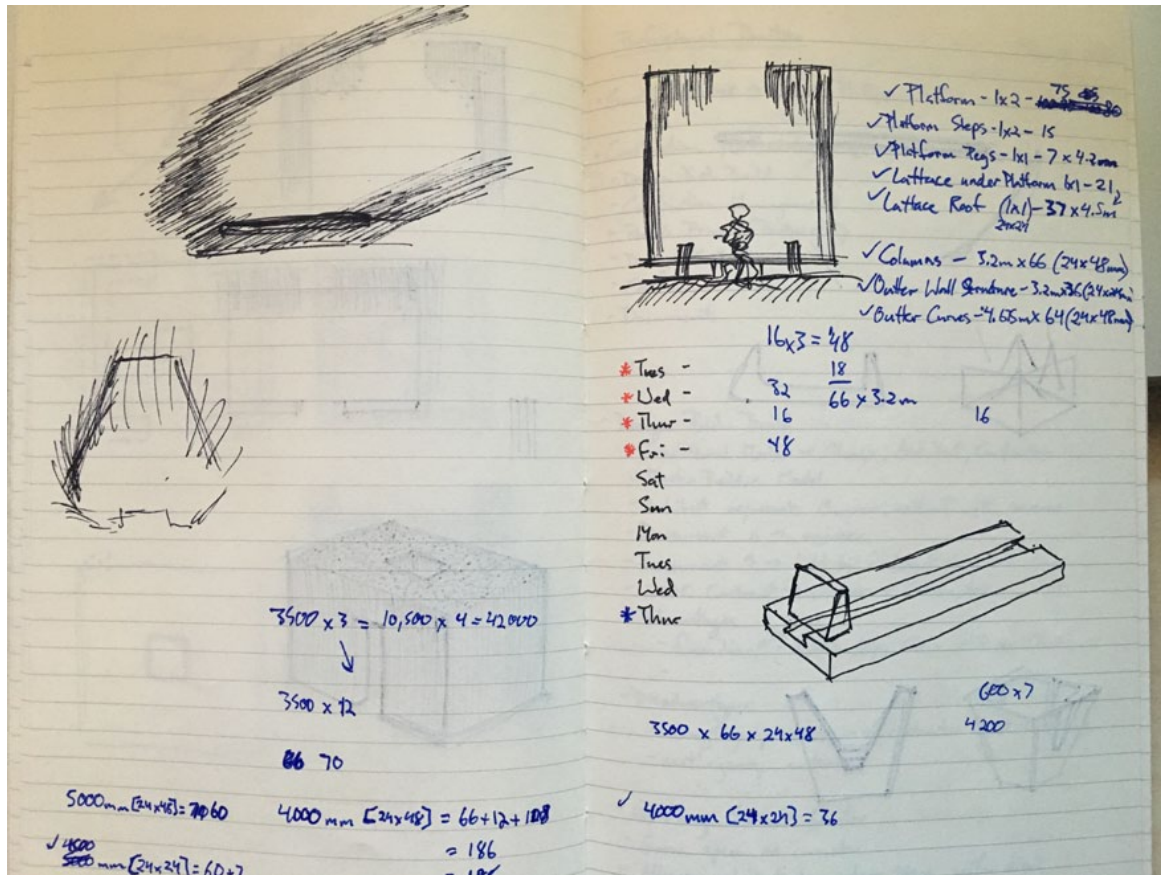 3500 x 3 = 10,500 x 4 = 42000
3500 x 12
70
5000mm [24x48] = 60
4000 mm [24x48] = 66+12+108
= 186
4500
mm [24x24] = 60+7
✓ Platform - 1x2 - 75
✓ Platform Steps - 1x2 - 15
✓ Platform Legs - 1x1 - 7 x 4.2mm
✓ Lattace under Platform 1x1 - 21
✓ Lattace Roof (1x1) - 37 x 4.5m
24x24
✓ Columns - 3.2m x 66 (24x48mm)
✓ Outter Wall Structure - 3.2m x 36
✓ Outter Curves - 4.65m x 64 (24x48mm)
16x3 = 48
18
66 x 3.2m
* Tues -
* Wed - 32
* Thur - 16 16
* Fri - 48
Sat
Sun
Mon
Tues
Wed
* Thur
600 x 7
4200
3500 x 66 x 24x48
✓ 4000 mm [24x24] = 36